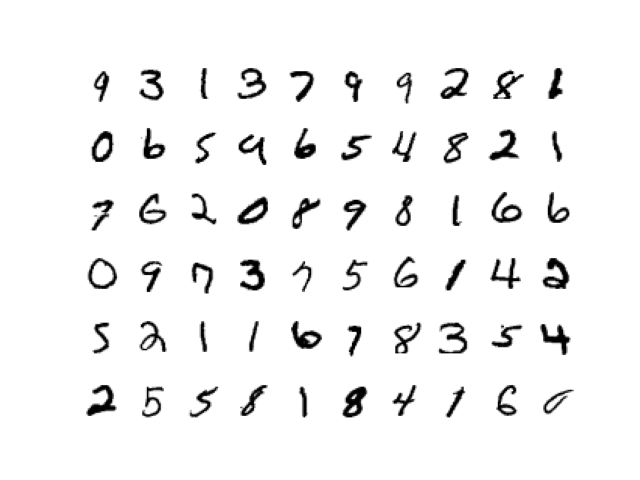 9 3 1 3 7 9 9 2 8 1
0 6 5 9 6 5 4 8 2 1
7 6 2 0 8 9 8 1 6 6
0 9 7 3 7 5 6 1 4 2
5 2 1 1 6 7 8 3 5 4
2 5 5 8 1 8 4 1 6 0